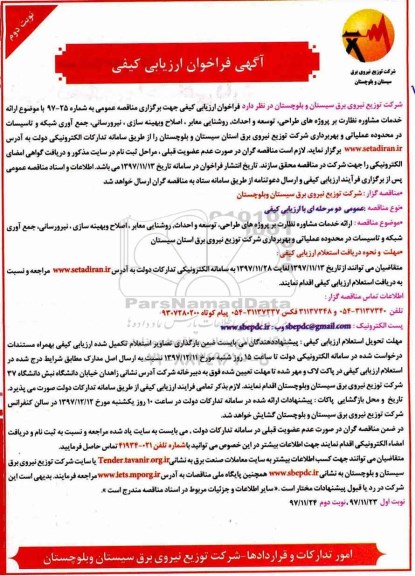 نوبت دوم
شرکت توزیع نیروی برق
سیستان و بلوچستان
آگهی فراخوان ارزیابی کیفی
شرکت توزیع نیروی برق سیستان و بلوچستان در نظر دارد فراخوان ارزیابی کیفی جهت برگزاری مناقصه عمومی به شماره ۲۵-۹۷ با موضوع ارائه
خدمات مشاوره نظارت بر پروژه های طراحی، توسعه و احداث، روشنایی معابر ، اصلاح وبهینه سازی ، نیرورسانی، جمع آوری شبکه و تاسیسات
در محدوده عملیاتی و بهربرداری شرکت توزیع نیروی برق استان سیستان و بلوچستان را از طریق سامانه تدارکات الکترونیکی دولت به آدرس
www.setadiran.ir برگزار نماید. لازم است مناقصه گران در صورت عدم عضویت قبلی ، مراحل ثبت نام در سایت مذکور و دریافت گواهی امضای
الکترونیکی را جهت شرکت در مناقصه محقق سازند. تاریخ انتشار فراخوان در سامانه تاریخ ۱۳۹۷/۱۱/۱۳ می باشد. اطلاعات و اسناد مناقصه عمومی
پس از برگزاری فرآیند ارزیابی کیفی و ارسال دعوتنامه از طریق سامانه ستاد به مناقصه گران ارسال خواهد شد
•مناقصه گزار : شرکت توزیع نیروی برق سیستان وبلوچستان
•نوع مناقصه :عمومی دو مرحله ای با ارزیابی کیفی
•موضوع مناقصه : ارائه خدمات مشاوره نظارت بر پروژه های طراحی، توسعه و احداث، روشنایی معابر ، اصلاح وبهینه سازی ، نیرورسانی، جمع آوری
شبکه و تاسیسات در محدوده عملیاتی وبهربرداری شرکت توزیع نیروی برق استان سیستان
•مهلت و نحوه دریافت استعلام ارزیابی کیفی :
متقاضیان می توانند از تاریخ ۱۳۹۷/۱۱/۱۳ لغایت ۱۳۹۷/۱۱/۲۸ به سامانه الکترونیکی تدارکات دولت به آدرس www.setadiran.ir مراجعه و نسبت
به دریافت ارزیابی کیفی اقدام نمایند.
اطلاعات تماس مناقصه گزار :
تلفن ۳۱۱۳۷۳۴۰-۰۵۴ و ۳۱۱۳۷۳۴۸ فکس ۳۱۱۳۷۳۳۷-۰۵۴ پیام کوتاه
پست الکترونیک : sbepdc@gmail.com وب : www.sbepdc.ir
مهلت تحویل استعلام ارزیابی کیفی : پیشنهاددهندگان می بایست ضمن بارگذاری تصاویر استعلام تکمیل شده ارزیابی کیفی بهمراه مستندات
درخواست شده در سامانه الکترونیکی دولت تا ساعت ۱۵ روز شنبه مورخ ۱۳۹۷/۱۲/۱۱ نسبت به ارسال اصل مدارک مطابق شرایط درج شده در
استعلام ارزیابی کیفی در پاکت لاک و مهر شده تا مهلت تعیین شده فوق به دبیرخانه شرکت آدرس نشانی زاهدان خیابان دانشگاه نبش دانشگاه ۳۷
شرکت توزیع نیروی برق سیستان وبلوچستان اقدام نمایند. لازم بذکر تمامی فرایند ارزیابی کیفی از طریق سامانه تدارکات دولت صورت می پذیرد.
تاریخ و محل بازگشایی پاکات : پیشنهادات ارائه شده در سامانه تدارکات دولت در ساعت ۱۰ روز یکشنبه مورخ ۱۳۹۷/۱۲/۱۲ در سالن کنفرانس
شرکت توزیع نیروی برق سیستان و بلوچستان گشایش خواهد شد.
در ضمن مناقصه گران در صورت عدم عضویت قبلی در سامانه تدارکات دولت ، می بایست به سایت یاد شده مراجعه و نسبت به ثبت نام و دریافت
امضاء الکترونیکی اقدام نمایند جهت اطلاعات بیشتر در این خصوص می توانید با شماره تلفن ۰۲۱-۴۱۹۳۴ تماس حاصل فرمایید.
متقاضیان می توانند جهت کسب اطلاعات بیشتر به سایت معاملات صنعت برق به نشانی Tender.tavanir.org.ir یا سایت شرکت توزیع نیروی برق
سیستان و بلوچستان به نشانی www.sbepdc.ir همچنین پایگاه ملی مناقصات به آدرس www.iets.mporg.ir مراجعه فرمایند. بدیهی است این
شرکت در رد یا قبول پیشنهادات مختار است . «سایر اطلاعات و جزئیات مربوط در اسناد مناقصه مندرج است ».
نوبت اول ۹۷/۱۱/۲۳، نوبت دوم ۹۷/۱۱/۲۴
امور تدارکات و قراردادها-شرکت توزیع نیروی برق سیستان وبلوچستان
ParsNamadData